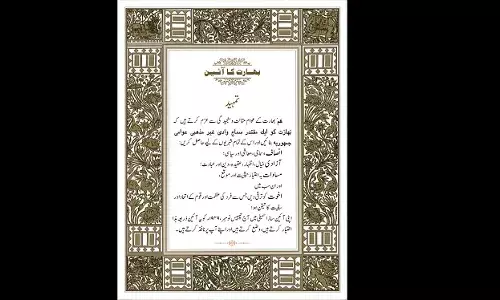 بھارت کا آئین
تمہید
ہم بھارت کے عوام متانت و سنجیدگی سے عزم کرتے ہیں کہ
بھارت کو ایک مقتدر سماج وادی غیر مذہبی عوامی
جمہوریہ بنائیں اور اس کے تمام شہریوں کے لیے حاصل کریں:
انصاف، سماجی، معاشی اور سیاسی؛
آزادیٔ خیال، اظہار، عقیدہ، دین اور عبادت؛
مساوات بہ اعتبار حیثیت اور موقع،
اور ان سب میں
اخوت کو ترقی دیں جس سے فرد کی عظمت اور قوم کے اتحاد اور
سالمیت کا تیقن ہو؛
اپنی آئین ساز اسمبلی میں آج چھبیس نومبر، ۱۹۴۹ء کو یہ آئین ذریعہ ہذا
اختیار کرتے ہیں، وضع کرتے ہیں اور اپنے آپ پر نافذ کرتے ہیں۔